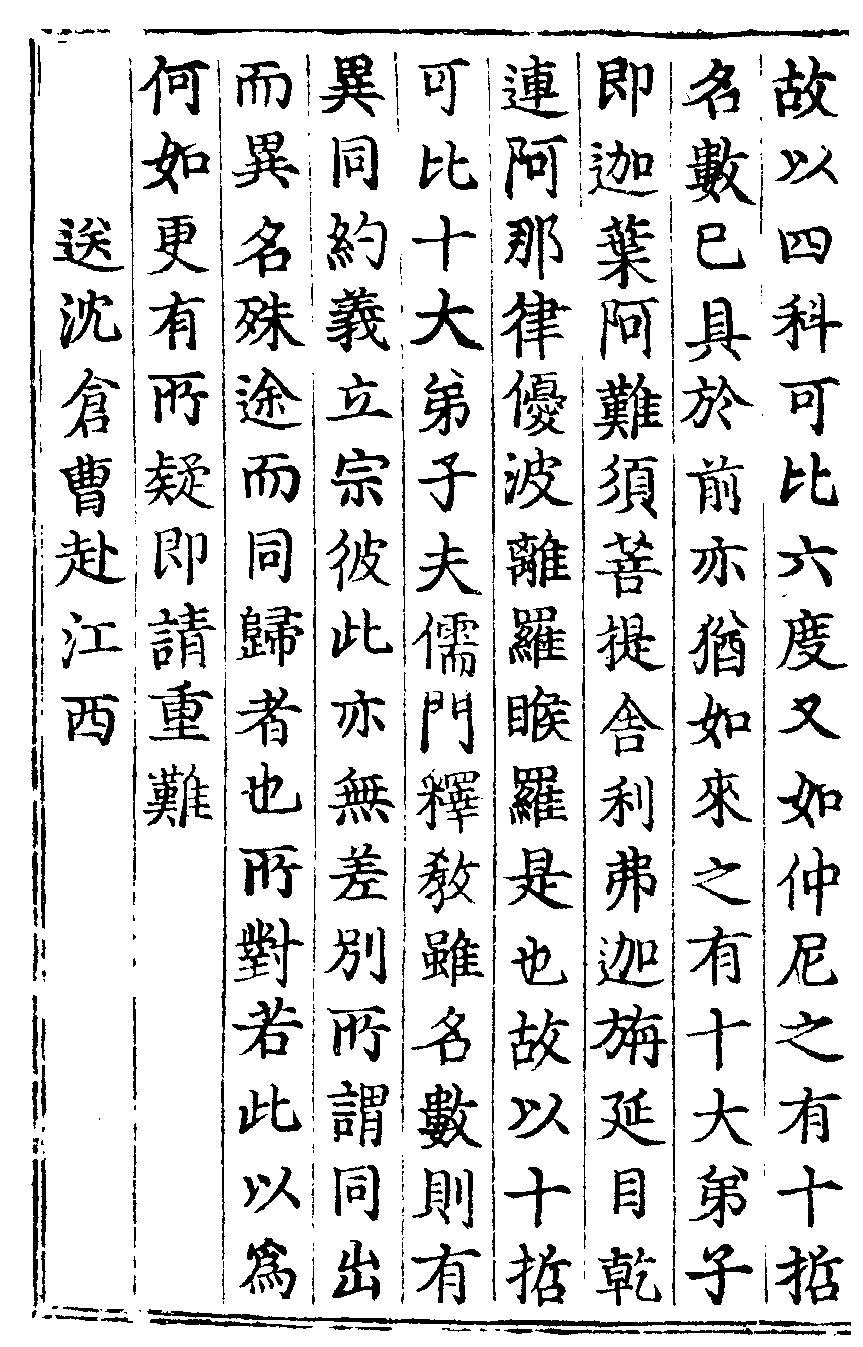 故以四科可比六度又如仲尼之有十哲
名數已具於前亦猶如來之有十大弟子
即迦葉阿難須菩提舍利弗迦旃延目乾
連阿那律優波離羅睺羅是也故以十哲
可比十大弟子夫儒門釋教雖名數則有
異同約義立宗彼此亦無差別所謂同出
而異名殊途而同歸者也所對若此以爲
何如更有所疑即請重難
送沈倉曹赴江西